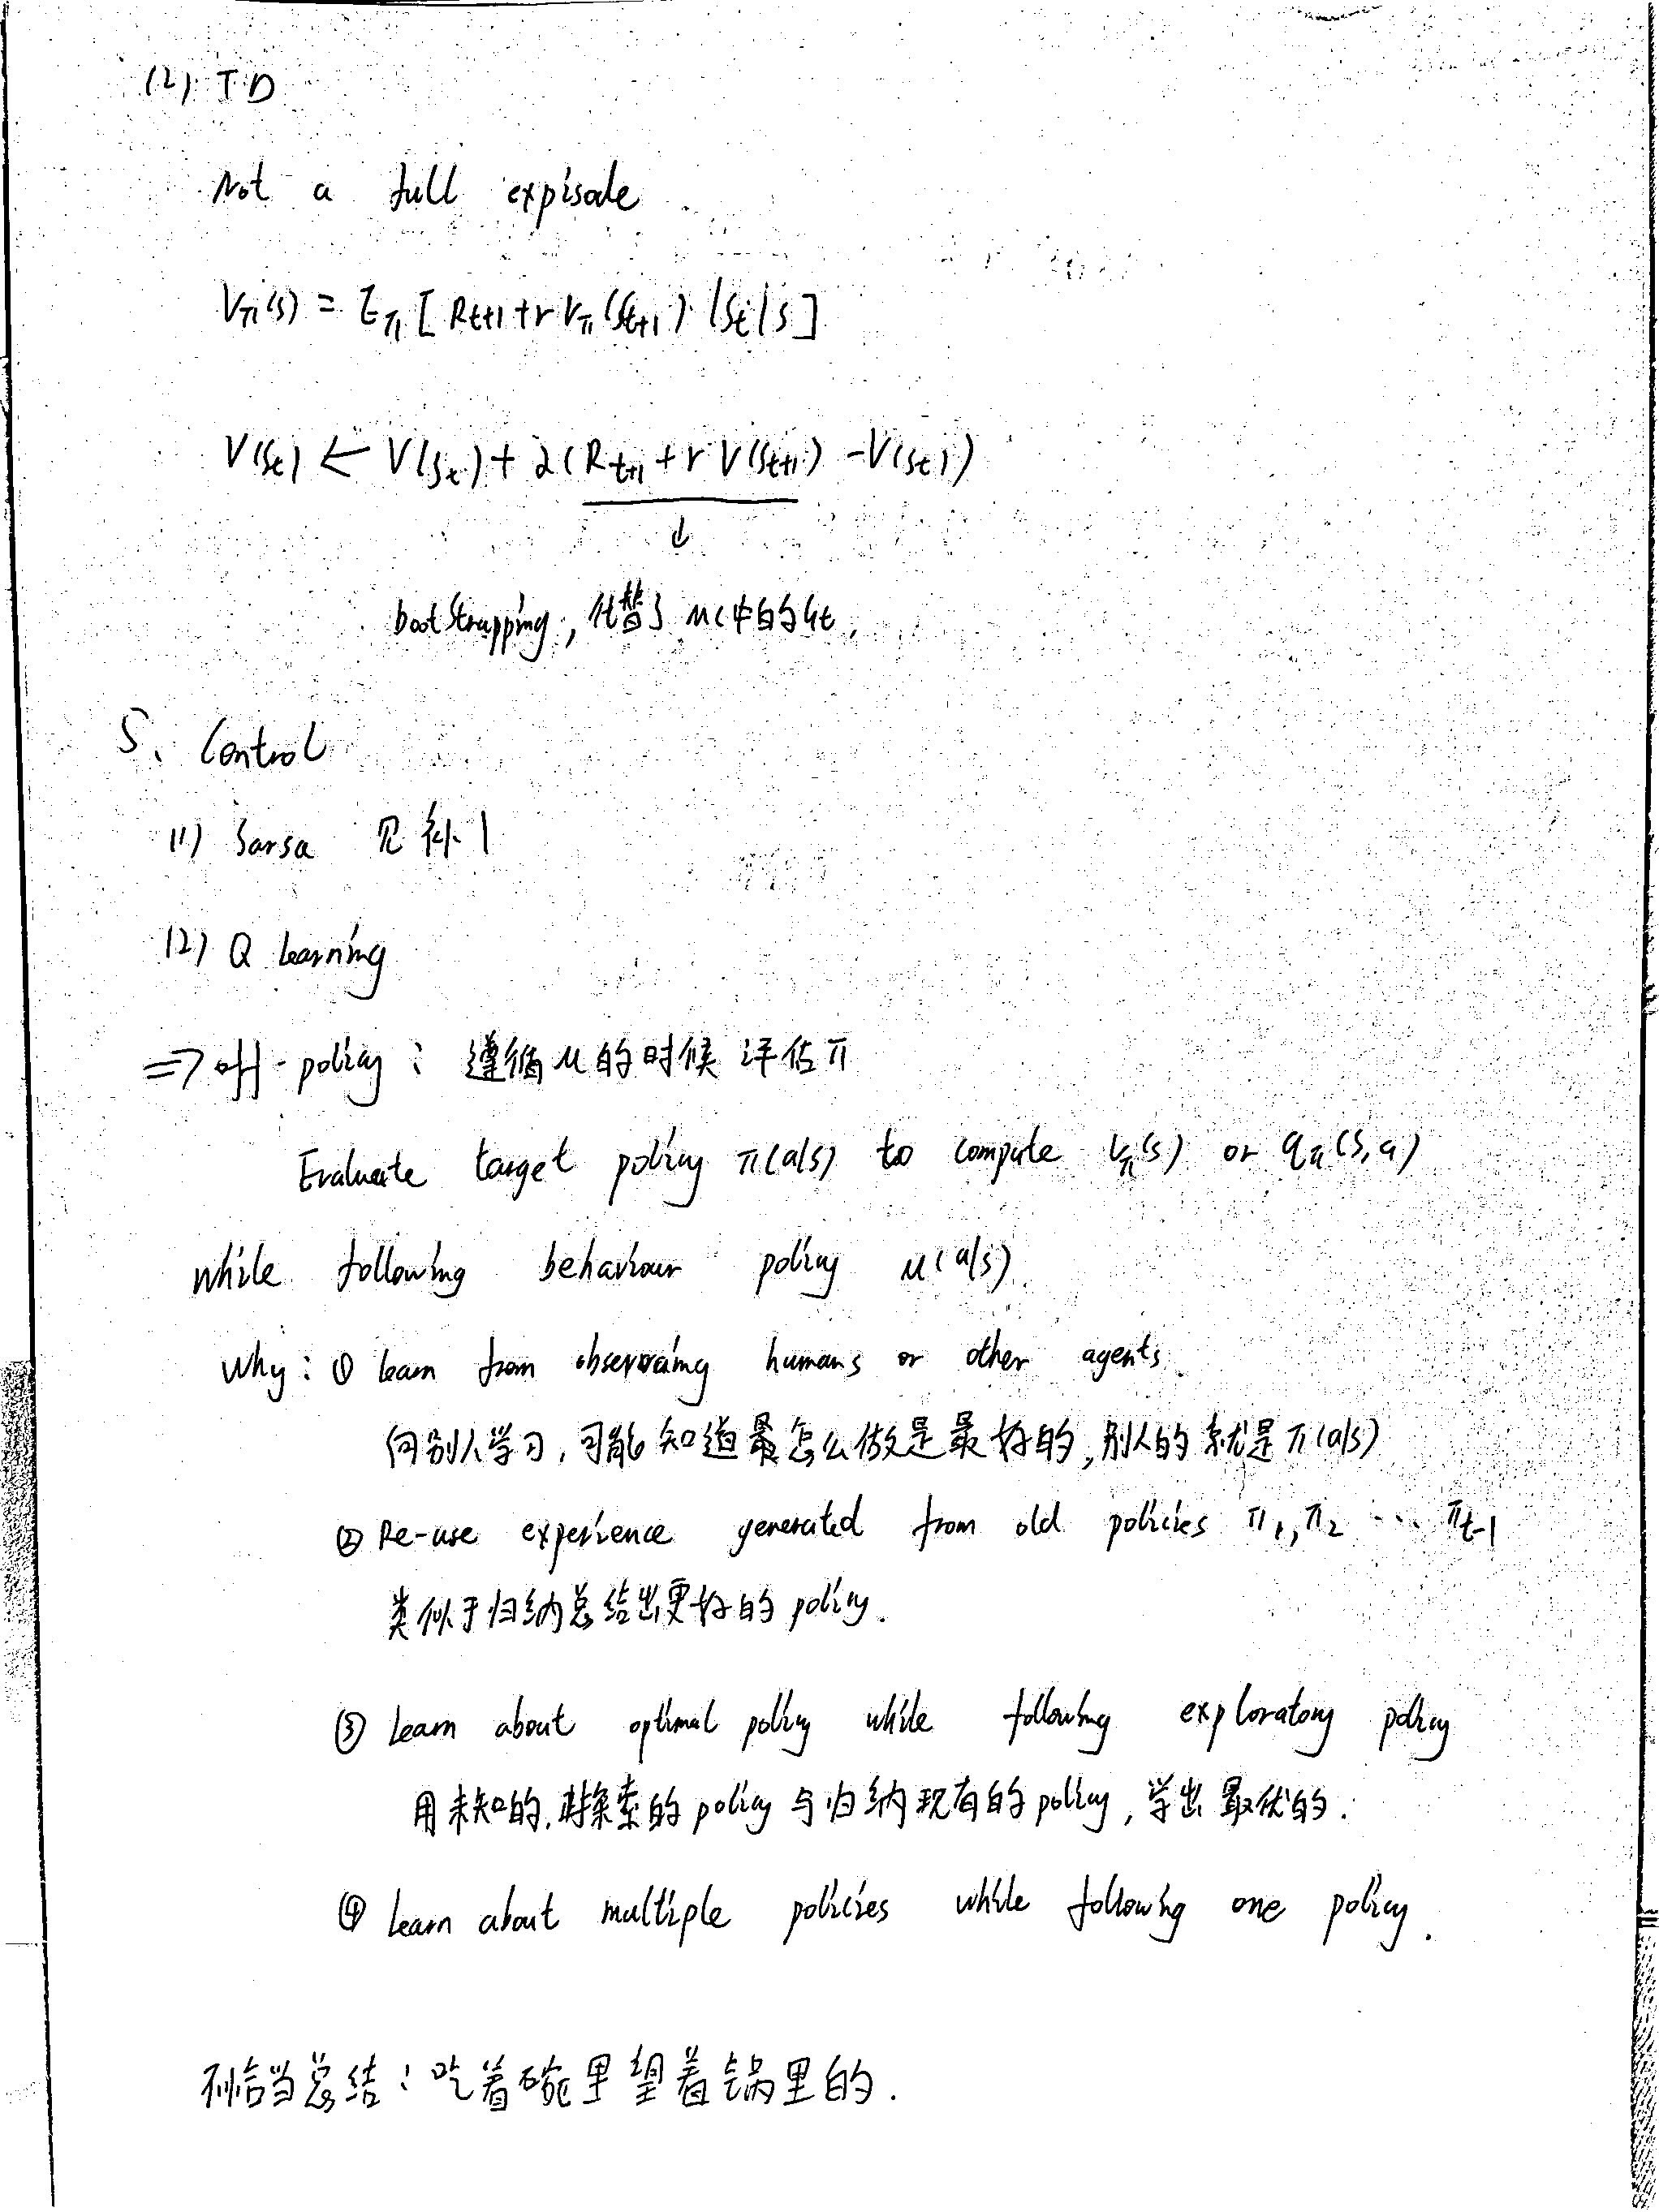 (2) TD
Not a full expisode
Vπ(s) = Eπ[Rt+1+rVπ(St+1)|St|s]
V(St) ← V(St)+α(Rt+1+rV(St+1)-V(St))
↓
bootstrapping, 代替了MC中的Gt.
5. Control
(1) Sarsa 见补1
(2) Q learning
⇒ off-policy: 遵循μ的时候 评估π
Evaluate target policy π(a|s) to compute Vπ(s) or qπ(s,a)
while following behaviour policy μ(a|s)
Why: ① learn from observing humans or other agents
向别人学习,可能知道最怎么做是最好的,别人的就是π(a|s)
② Re-use experience generated from old policies π1,π2 ... πt-1
类似于归纳总结出更好的policy.
③ Learn about optimal policy while following exploratory policy
用未知的,探索的policy与归纳现有的policy,学出最优的.
④ Learn about multiple policies while following one policy.
不恰当总结:吃着碗里望着锅里的.